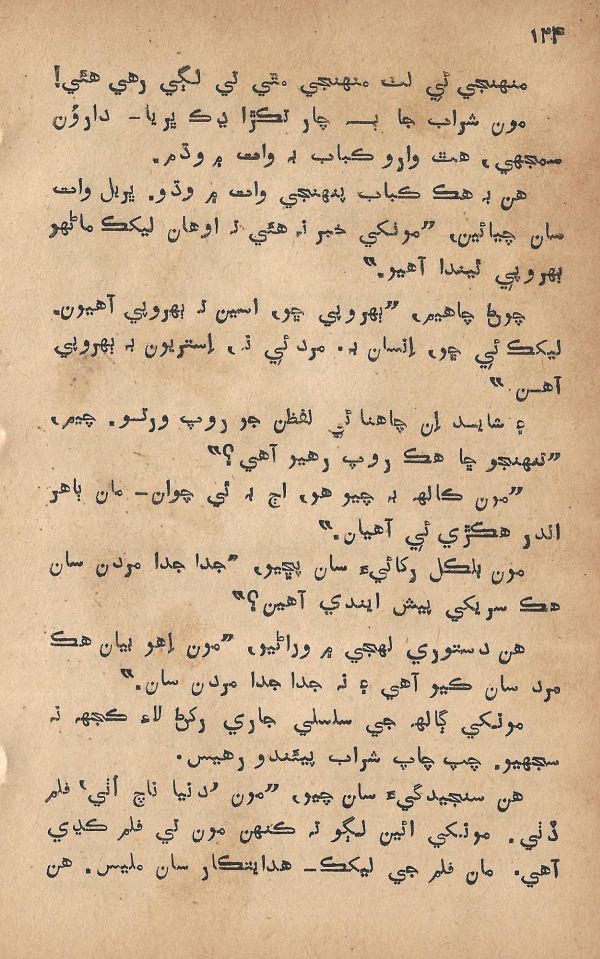 ۱۲۴
منهنجي ئي لٺ منهنجي مٿي تي لڳي رهي هئي!
مون شراب جا ٻه چار تڪڙا ڍڪ ڀريا- دارُون
سمجهي، هٿ وارو ڪباب به وات ۾ وڌم.
هن به هڪ ڪباب پنهنجي وات ۾ وڌو. ڀريل وات
سان چيائين، ”مونکي خبر نه هئي ته اوهان ليکڪ ماڻهو
بهروپي ٿيندا آهيو.“
چوڻ چاهيم، ”بهروپي ڇو، اسين ته بهروپي آهيون.
ليکڪ ئي ڇو، اِنسان به. مرد ئي نه، اِستريون به بهروپي
آهن “
۽ شايد اِن چاهنا ئي لفظن جو روپ ورتو. چيم،
”تنهنجو ڇا هڪ روپ رهيو آهي؟“
”مون ڪالهه به چيو هو، اڄ به ٿي چوان- مان ٻاهر
اندر هڪڙي ئي آهيان.“
مون بلڪل رکائيءَ سان پڇيو، ”جدا جدا مردن سان
هڪ سريکي پيش ايندي آهين؟“
هن دستوري لهجي ۾ وراڻيو، ”مون اِهو بيان هڪ
مرد سان ڪيو آهي ۽ نه جدا جدا مردن سان.“
مونکي ڳالهه جي سلسلي جاري رکڻ لاءِ ڪجهه نه
سجهيو. چپ چاپ شراب پيئندو رهيس.
هن سنجيدگيءَ سان چيو، ”مون ’دنيا ناچ اُٿي‘ فلم
ڏٺي. مونکي ائين لڳو ته ڪنهن مون تي فلم ڪڍي
آهي. مان فلم جي ليکڪ- هدايتڪار سان مليس. هن